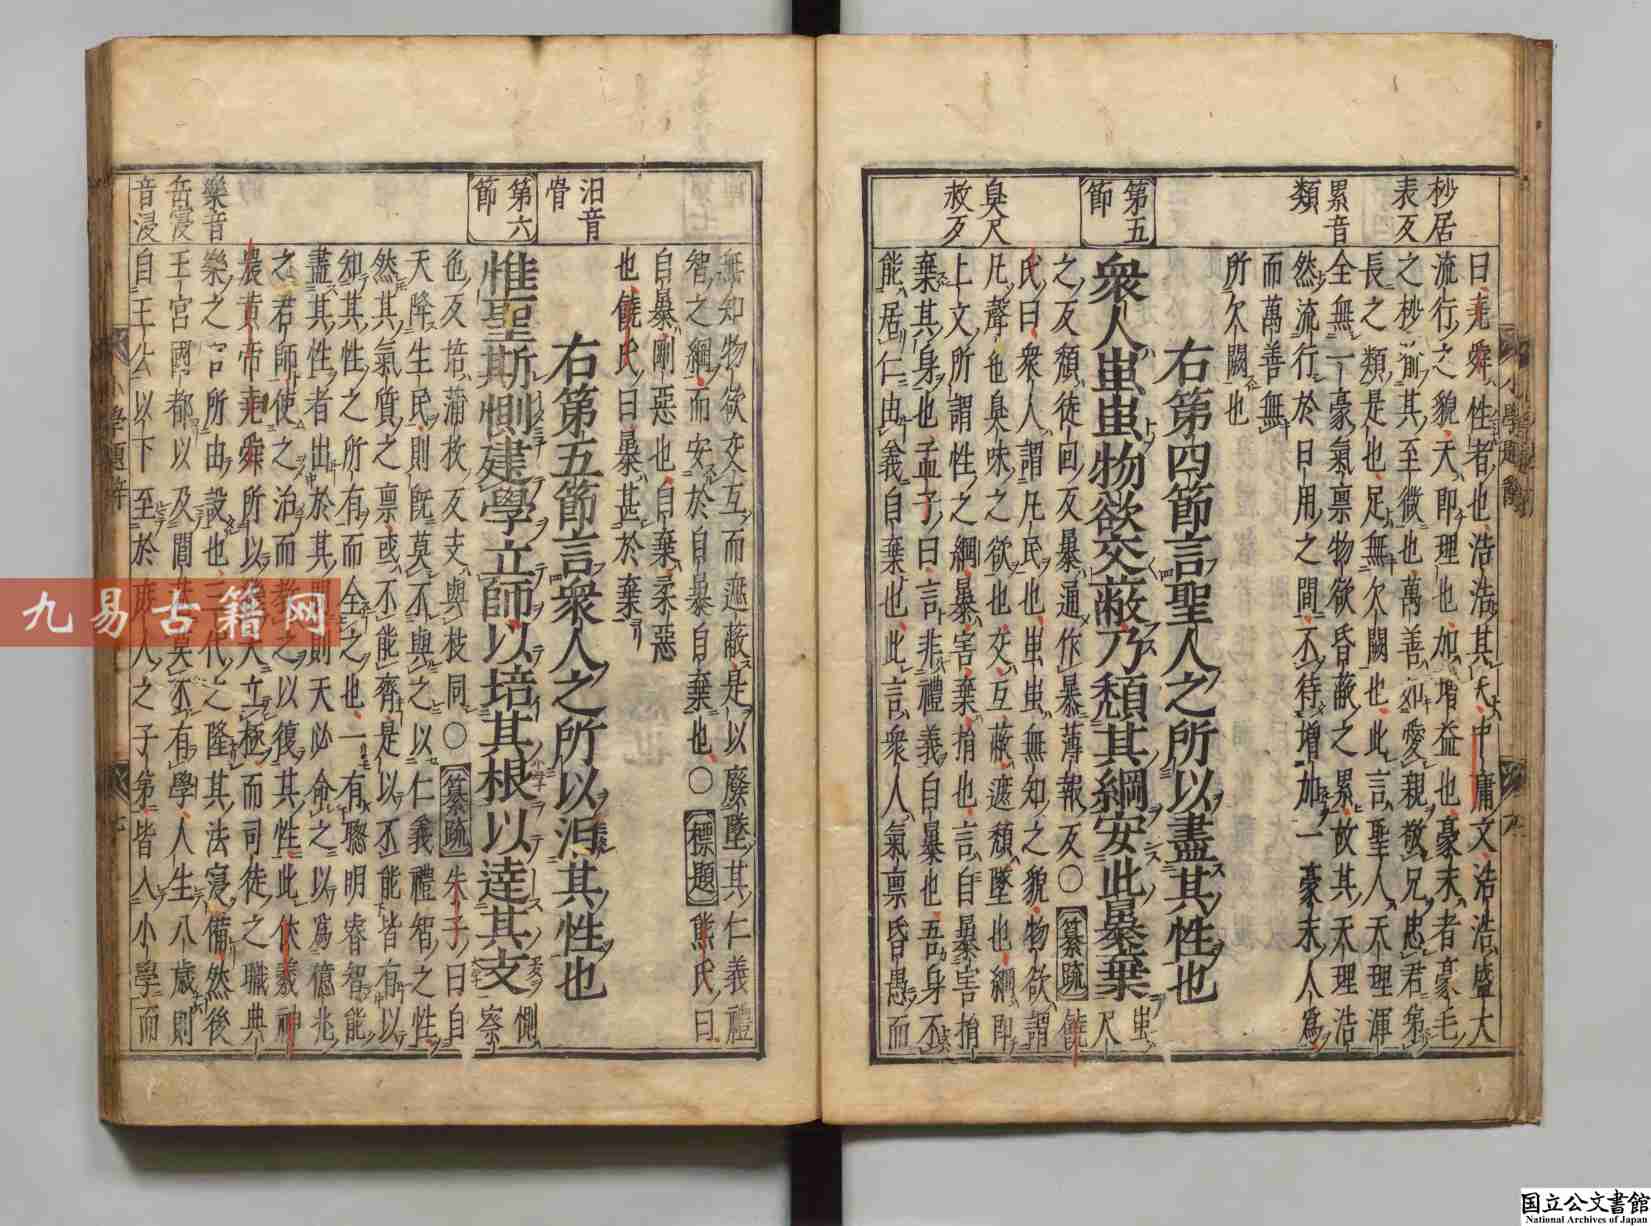 杪居
表反
累音
類
第五
節
臭尺
救反
曰堯舜性者也浩浩其天中庸文浩浩盛大
流行之貌天即理也加增益也豪末者豪毛
之杪渝其至微也萬善如愛親敬兄忠君弟
長之類是也足無欠闕也此言聖人天理渾
全無一豪氣稟物欲昏蔽之累故其天理浩
然流行於日用之間不待增加一豪末人爲
而萬善無
所欠闕也
右第四節言聖人之所以盡其性也
衆人蚩蚩物欲交蔽乃頹其綱安此暴棄
蚩
尺
之反頹徒回反暴通作暴薄報反○纂疏饒
氏曰衆人謂凡民也蚩蚩無知之貌物欲謂
凡聲色臭味之欲也交互蔽遮頹墜也綱即
上文所謂性之綱暴害棄捐也言自暴害捐
棄其身也孟子曰言非禮義自暴也吾身不
能居仁由義自棄也此言衆人氣稟昏愚而
汨音
骨
第六
節
樂音
岳寖
音浸
無知物欲交互而遮蔽是以廢墜其仁義禮
智之綱而安於自暴自棄也○標題熊氏曰
自暴剛惡也自棄柔惡
也饒氏曰暴甚於棄
右第五節言衆人之所以汨其性也
惟聖斯惻建學立師以培其根以達其支
惻
察
也反培蒲枚反支與枝同○纂疏朱子曰自
天降生民則既莫不與之以仁義禮智之性
然其氣質之稟或不能齊是以不能皆有以
知其性之所有而全之也一有聰明睿智能
盡其性者出於其間則天必命之以爲億兆
之君師使之治而教之以復其性此伏羲神
農黃帝堯舜所以繼天立極而司徒之職典
樂之官所由設也三代之隆其法寖備然後
王宮國都以及閭巷莫不有學人生八歲則
自王公以下至於庶人之子弟皆入小學而
九易古籍网
国立公文書館
National Archives of Japan